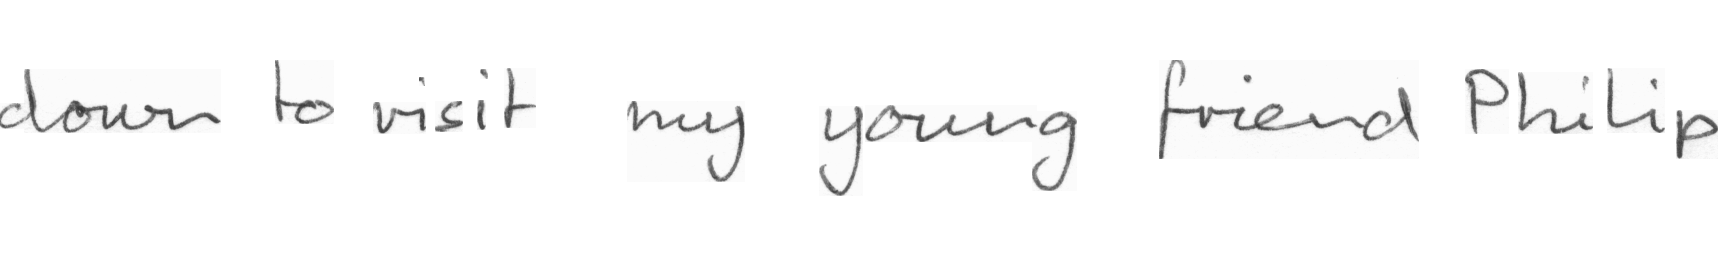 down to visit my young friend Philip